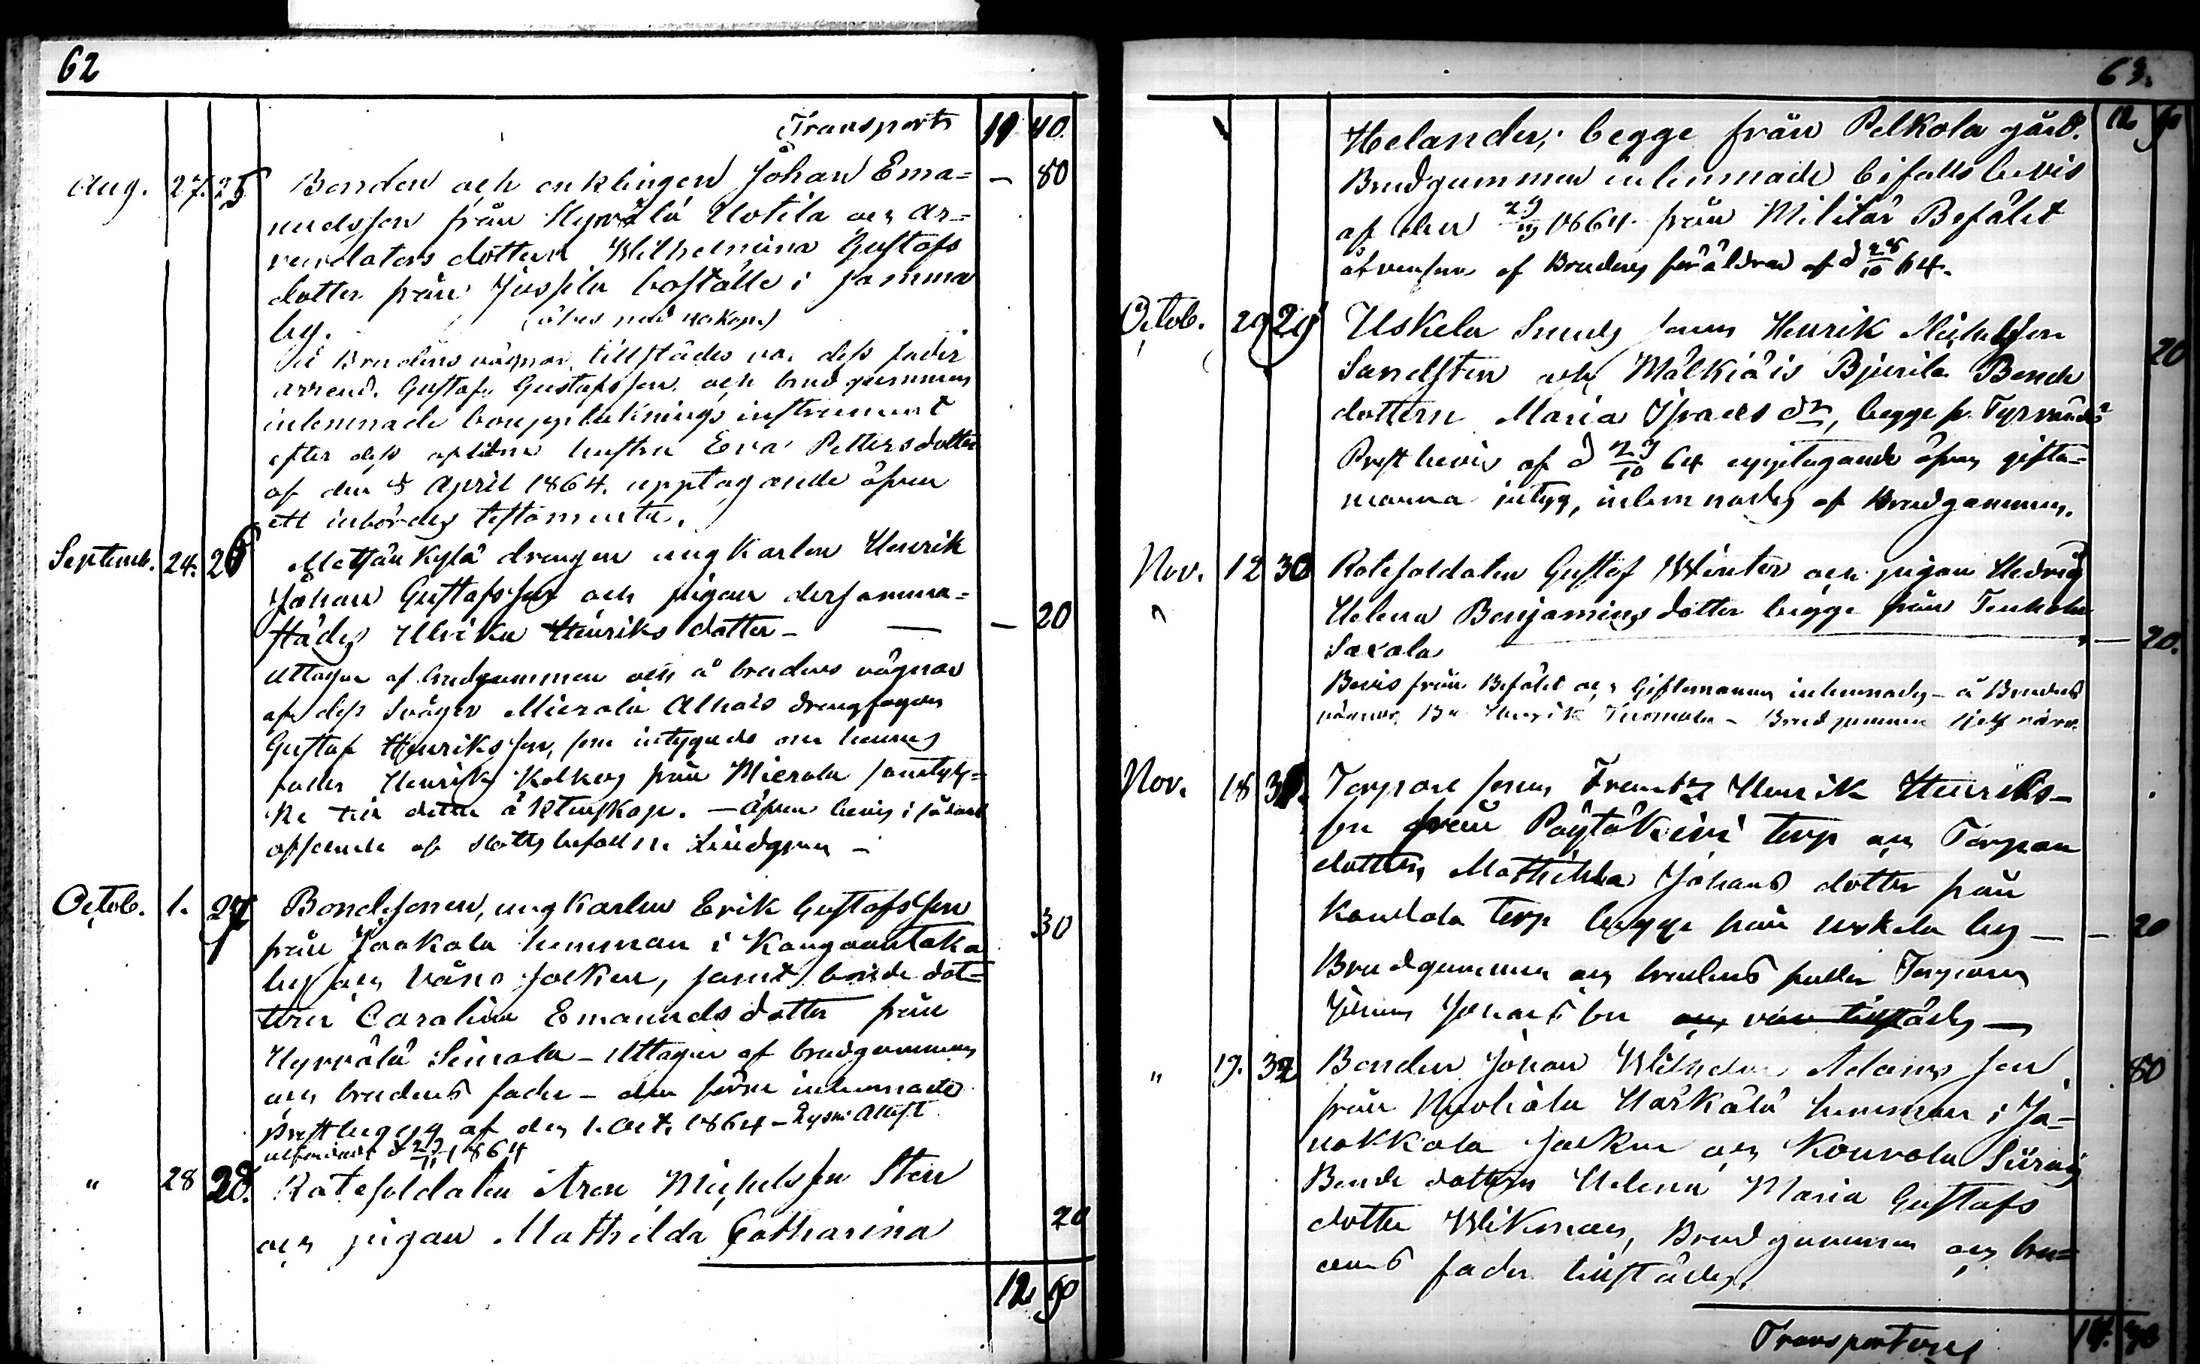 62
Transport 11 40.
Aug. 27. 25 Bonden och enklingen Johan Ema= — 80
nuelsson från Hyvälä Uotila och ar=
rendators dottern Wilhelmina Gustafs
dotter från Jussila boställe i samma
by.
å Brudens vägnar tillstädes var dess fader
arrend. Gustaf Gustafsson, och brudgummen
inlemnade bouppteknings instrument
efter dess aflidna hustru Eva Pettersdotter
af den 5 April 1864. upptagande äfven
ett inbördes testamente.
Septemb. 24. 26 drengen ungkarlen Henrik
Johan Gustafsson och pigan dersamma=
städes Ulrika Henriks dotter — — 20
Uttagen af brudgummen och å brudens vägnar
af dess Svåger Mierola Alhais
Gustaf Henriksson, som intygade om hennes
fader Henrik från Mierola samtyk=
ke till detta äktenskap. — äfven bevis i sådant
afseende af Lindgren —
Octob. 1. 27 Bondesonen, ungkarlen Erik Gustafsson 30
från Jaakola hemman i Kangaantaka
by och Vånå socken, samt bonde dot=
tren Carolina Emanuels dotter från
Hyvälä Seurala — Uttagen af brudgummen
och brudens fader — den förre inlemnade
Prestbetyg af den 1. Oct. 1864 — Attest
1864
" 28 28. Rotesoldaten Aron Michelsson Sten
och pigan Mathilda Catharina 20
12 90
63.
Helander, begge från Pelkola gård. 12 90
Brudgummen inlemnade bifallsbevis
af den 1864 från Militär Befälet
äfvensom af Brudens föräldrar af d 28/10 64.
Octob. 29 29 Uskela Smeds sonen Henrik Michelsson
Sandsten och Mälkiäis Bjurila Bonde 20
dottern Maria Israels dr, begge fr. Tyrvändö
Prestbevis af d 23/10 64 upptagande äfven gifto=
manna intyg, inlemnades af Brudgummen.
Nov. 12 30 Rotesoldaten Gustaf Winter och pigan Hedvig
" Helena Benjamins dotter begge från Tenhola
Saxala — 20.
Bevis från Befälet och Giftomannen inlemnades — å Brudens
vägnar Henrik Tuomola — Brudgummen sjelf närv.
Nov. 18 31. Torpare sonen Frantz Henrik Henriks-
son från Pöytäkivi torp och Torpare
dottern Mathilda Johans dotter från
Kandola torp begge från Uskela by — — 20
Brudgummen och brudens fader Torparen
Johansson och voro tillstädes —
" 19. 32 Bonden Johan Wilhelm Adamsson 80
från Härkälä hemman i Ja=
nakkala socken och Konvola Siirag
Bonde dottern Helena Maria Gustafs
dotter Wikman, Brudgummen och bru=
dens fader tillstädes.
Transporteres